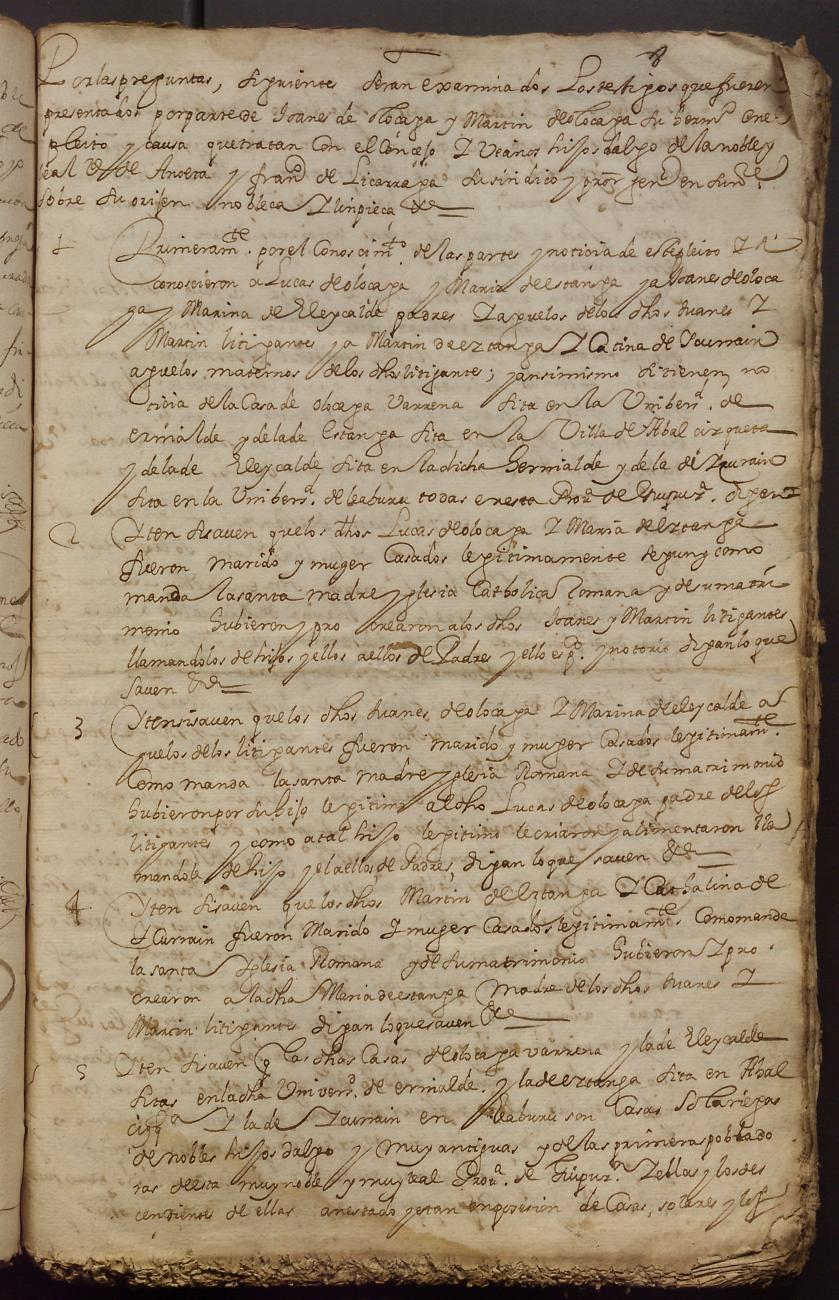 8
Por las preguntas, siguientes seran examinados Los testigos que fueren
presentados por parte de Joanes de olocaga y Martin de olocaga su herm.º en el
pleito y causa que tratan con el Concejo y Vecinos hijos dalgo de la noble y
leal Vª de Anoeta y fran.do de Licarraga su sindico y pro.r gen.l en su n.e
sobre su origen nobleca y limpieca &a
1 Primeram.te por el Conoscim.to de las partes y noticia de este pleito y si
conoscieron a Lucas de olocaga y Maria de estanga y a Joanes de oloca
ga y Marina de Eleycalde padres y aguelos de los dhos Juanes y
Martin litigantes y a Martin de eztanga y Catina de Ycurrain
aguelos maternos de los dhos litigantes; y ansimismo si tienen no
ticia de la Casa de olocaga Varrena sita en la Vnibers.d de
ernialde y de la de Estanga sita en la Villa de Abalcizqueta
y de la de Eleycalde sita en la dicha hernialde y de la de Ycurrain
sita en la Vnibers.d de leaburu todas en esta Pro.a de Guipuz.a digan
2 Yten si saven que los dhos Lucas de olocaga y Maria de Eztanga
fueron marido y muger Casados legitimamente segun y como
manda la santa madre yglesia Catholica Romana y de su matri
monio hubieron y pro crearon a los dhos Joanes y Martin litigantes
llamandolos de hijos y ellos a ellos de Padres y ello es p.co y notorio digan lo que
saven &a
3 Yten si saven que los dhos Juanes de olocaga y Marina de eleycalde a
guelos de los litigantes fueron marido y muger Casados legitimam.te
Como manda la santa madre yglesia Romana y de su matrimonio
hubieron por su hijo legitimo al dho Lucas de olocaga padre de los
litigantes y como a tal hijo legitimo le criaron y alimentaron lla
mandole de hijo y el a ellos de Padres, digan lo que saven &a
4 Yten si saven que los dhos Martin de Eztanga y Cathalina de
Ycurrain fueron Marido y muger Casados legitimam.te Como manda
la santa Yglesia Romana y de su matrimonio hubieron y pro
crearon a la dha Maria de estanga Madre de los dhos Juanes y
Martin litigantes digan lo que saven &a
5 Yten si saven q las dhas Casas de olocaga varrena y la de Eleycalde
sitas en la dha Univers.d de ernialde y la de eztanga sita en Abal
cizq.a y la de Ycurrain en leaburu son Casas Solariegas
de nobles hijos dalgo y muy antiguas y de las primeras poblado
ras de esta muy noble y muy leal Prou.a de Guipuz.a y ellas y los des
cendientes de ellas an estado y estan en posesion de Casas, solares y los